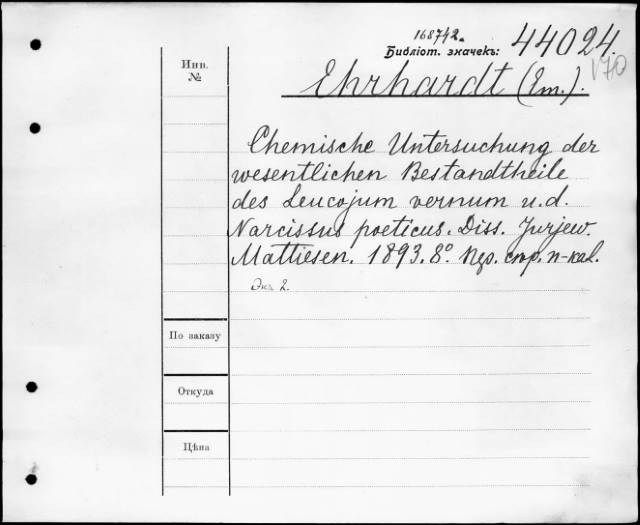 168742.
Библіот. значекъ: 44024.
Инв.
№
170
Ehrhardt (Em.).
Chemische Untersuchung der
wesentlichen Bestandtheile
des Leucojum vernum u. d.
Narcissus poeticus. Diss. Jurjew.
Mattiesen. 1893. 8°.
Экз 2.
По заказу
Откуда
Цѣна